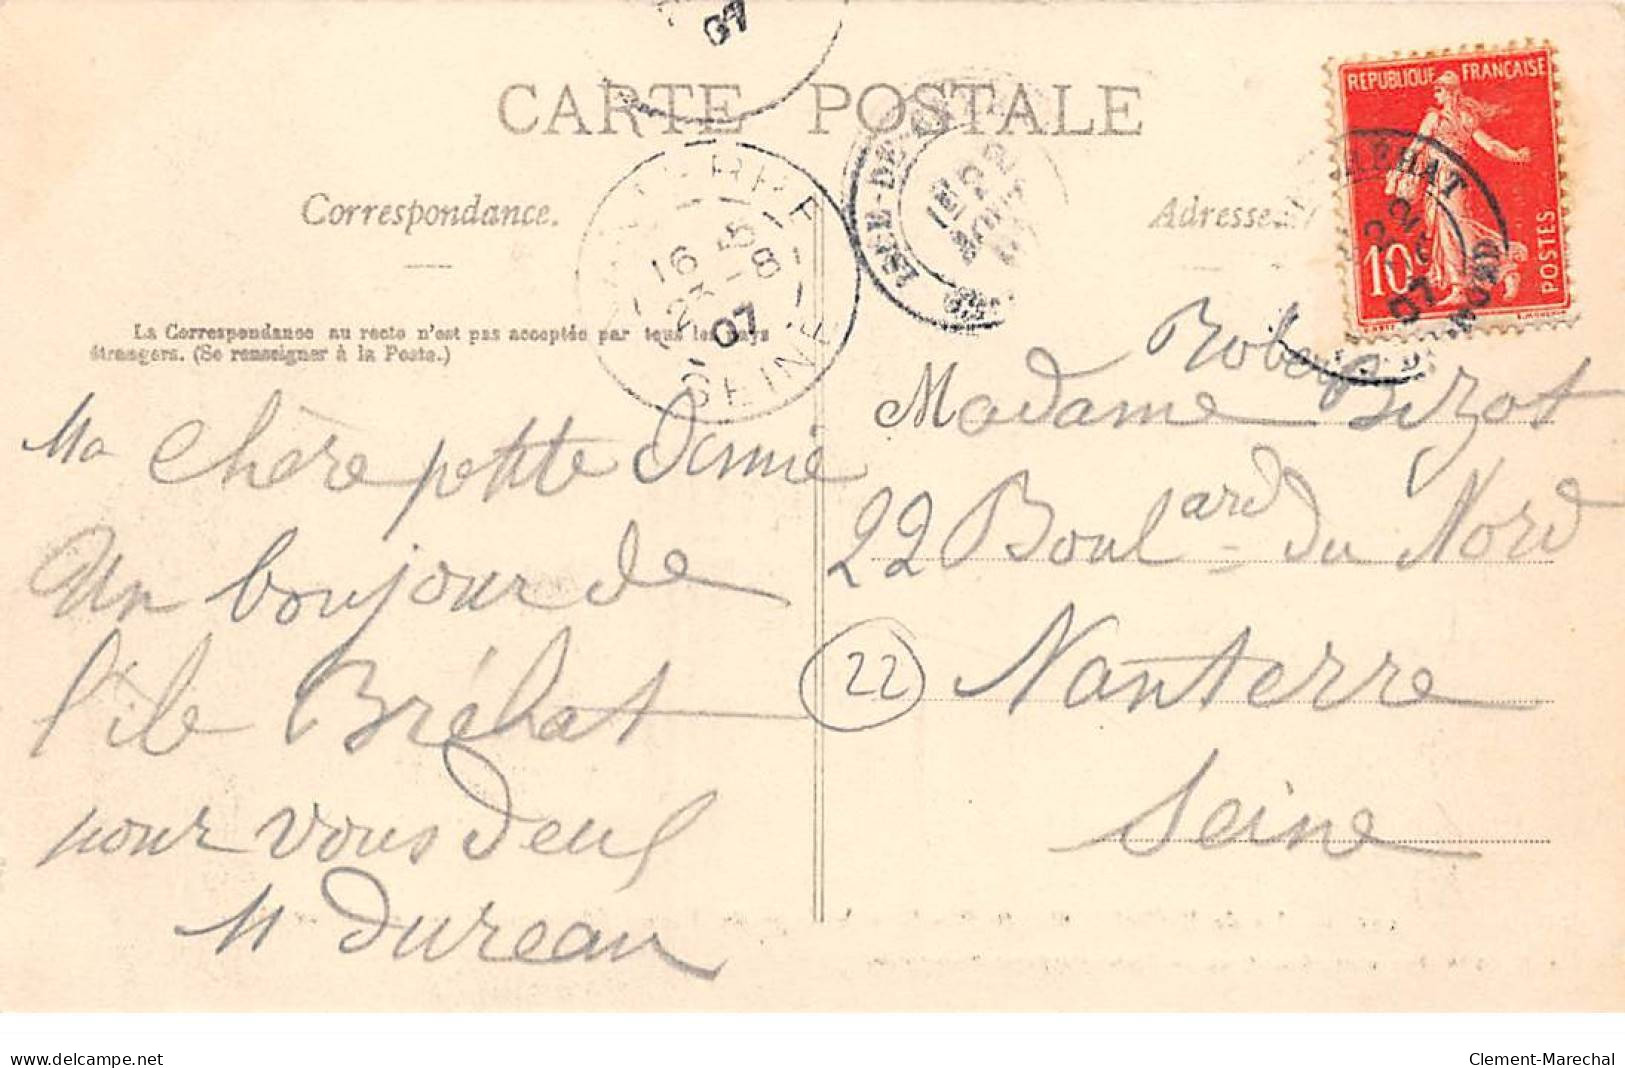 07
CARTE POSTALE
RÉPUBLIQUE FRANÇAISE
10
POSTES
Correspondance.
Adresse
NANTERRE
16 15
23 - 8
07
SEINE
ILE-DE-BRÉHAT
22
BREHAT
22
07
La Correspondance au recto n'est pas acceptée par tous les pays
étrangers. (Se renseigner à la Poste.)
Ma Chère petite Amie
Un bonjour de
l'ile Bréhat
pour vous deux
M Dureau
Robert
Madame Bizot
22 Boulard du Nord
22
Nanterre
Seine
www.delcampe.net
Clement-Marechal